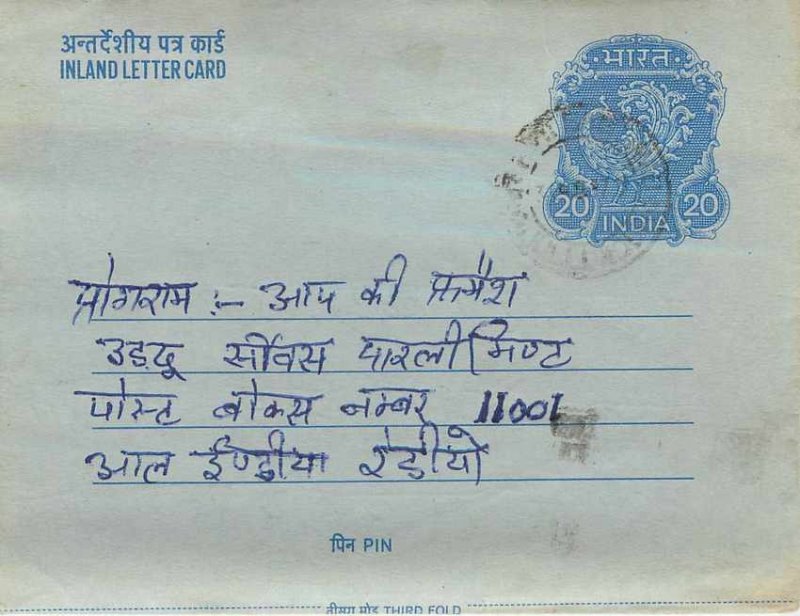 अन्तर्देशीय पत्र कार्ड
INLAND LETTER CARD
भारत
20 INDIA 20
प्रोगराम :- आप की फ्रमैश
उड़दू र्सोवस पारलीमिण्ट
पोस्ट बोकस नम्बर 11001
आल ईण्डीया रेडीयो
पिन PIN
तीसरा मोड़ THIRD FOLD